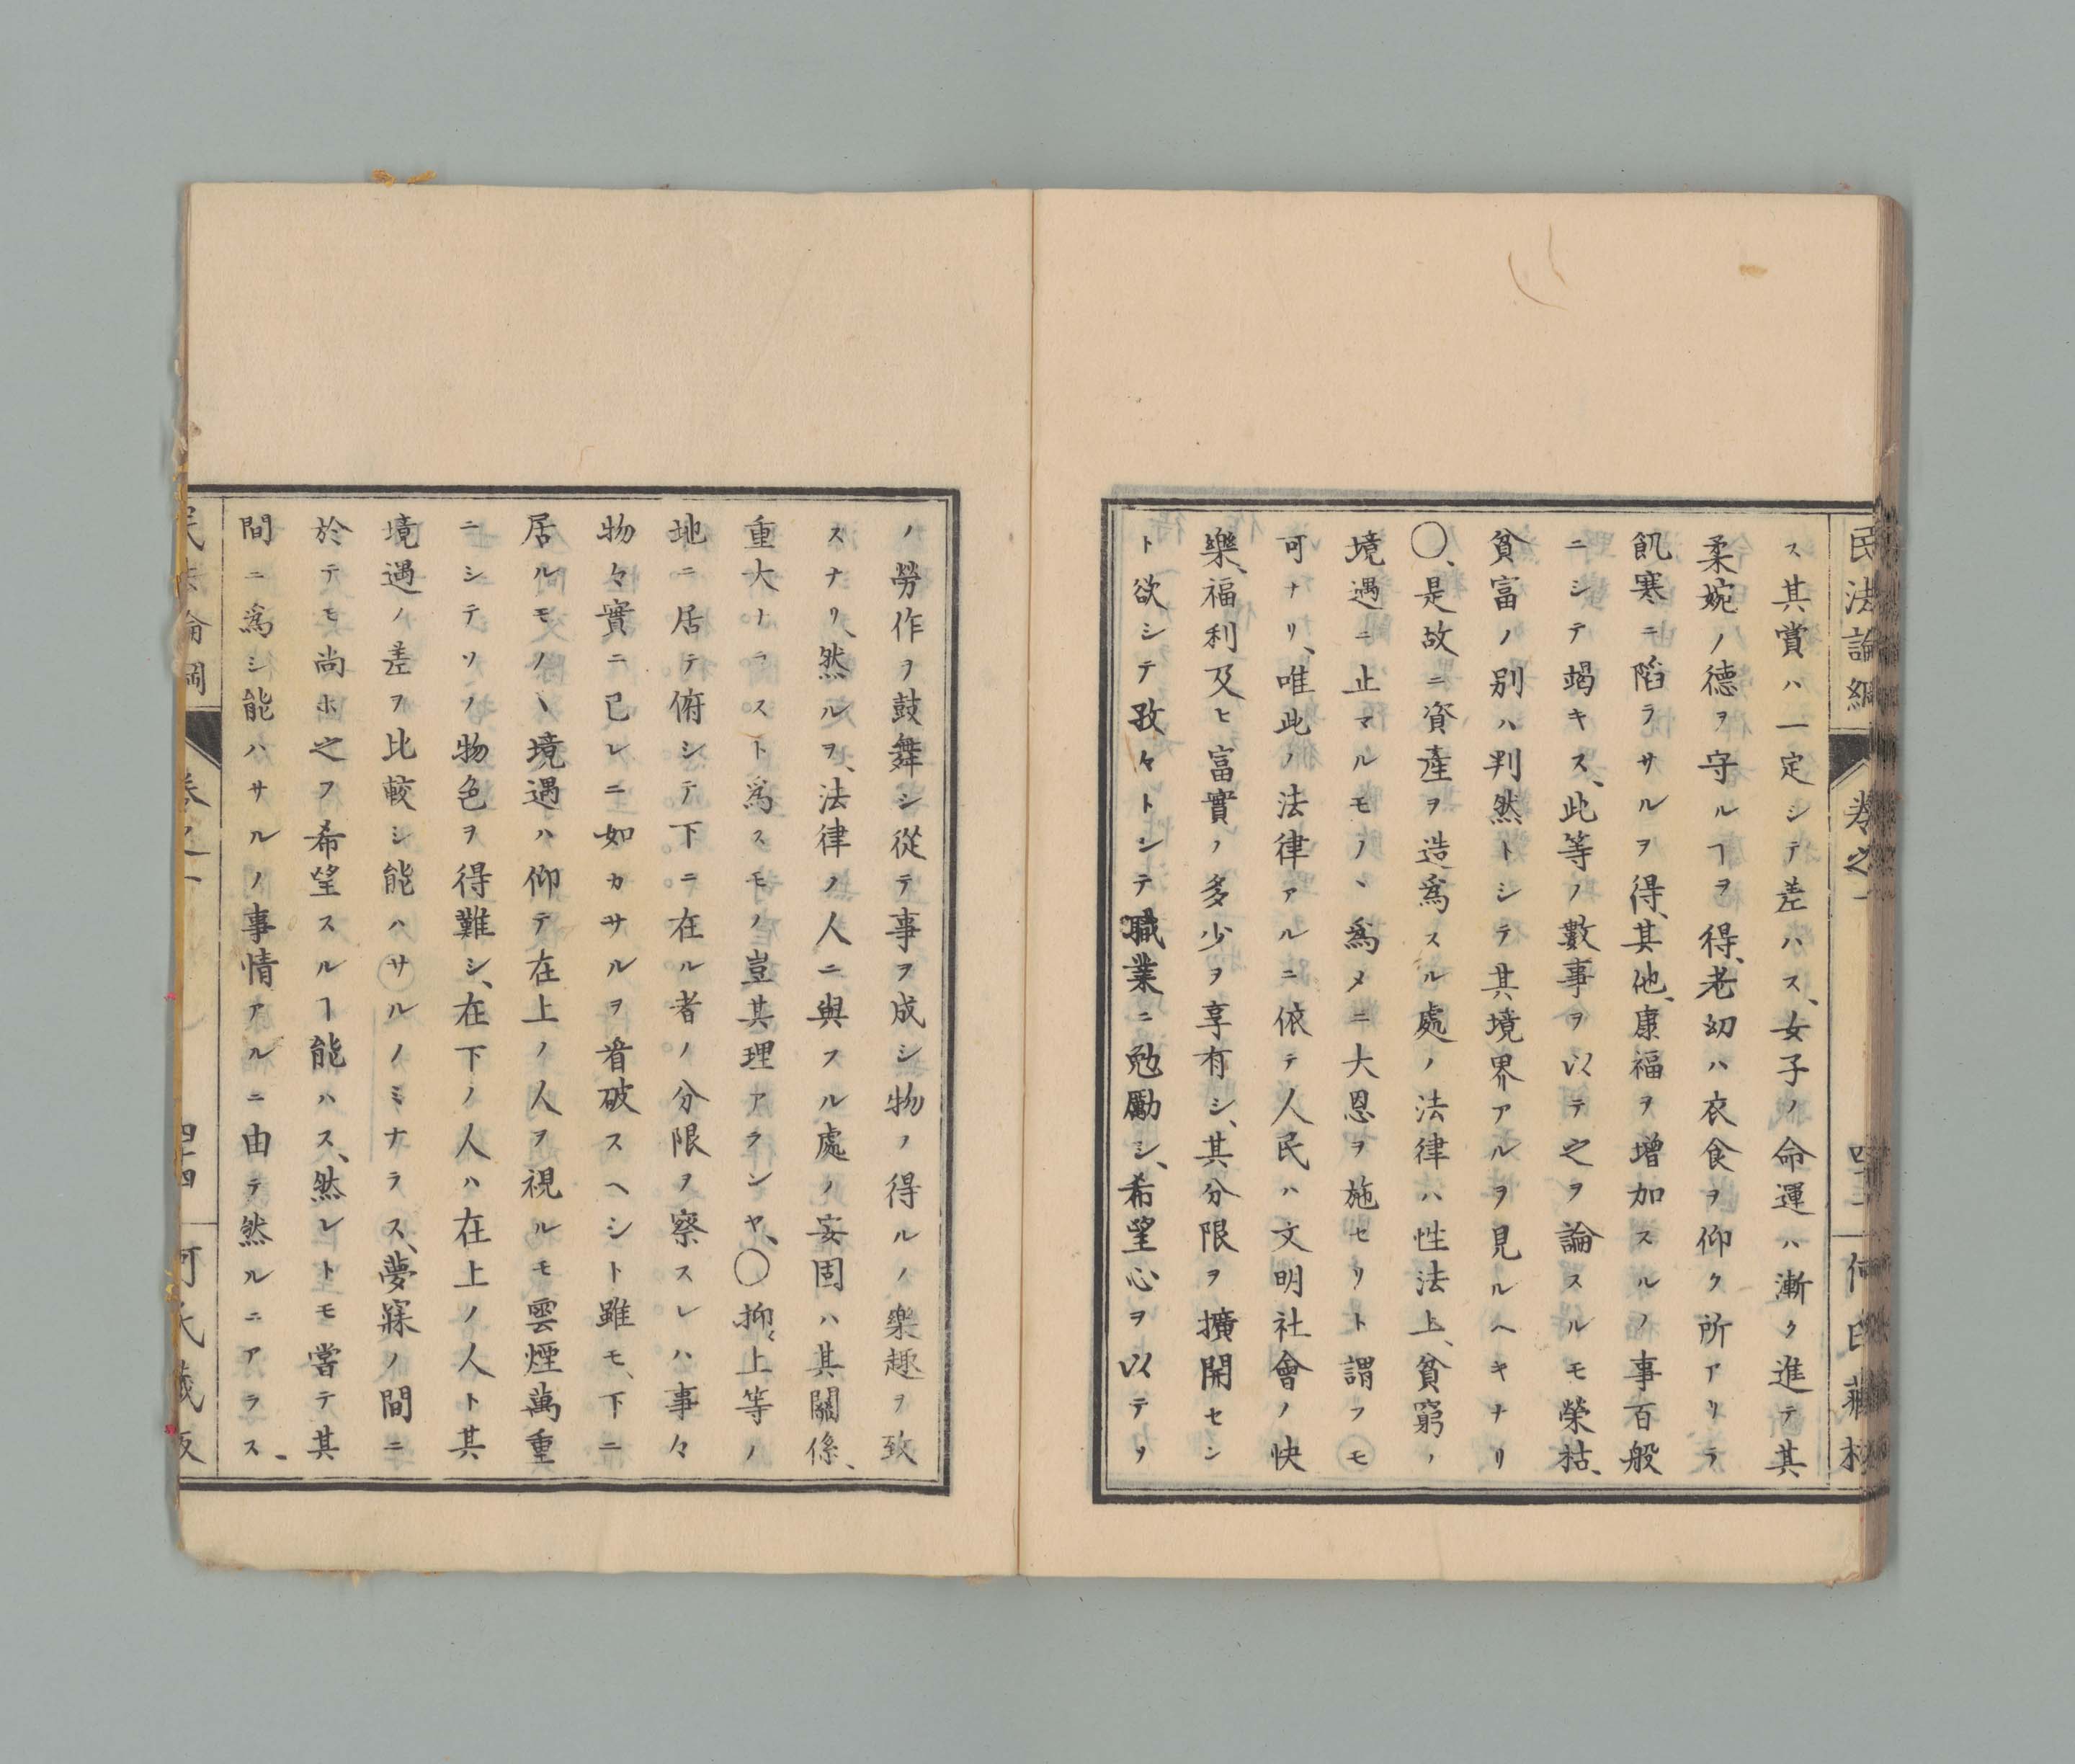 民法論綱 卷之一 四十三 何氏藏板
ス其賞ハ一定シテ差ハス、女子ノ命運ハ漸ク進テ其
柔婉ノ德ヲ守ルヿヲ得、老幼ハ衣食ヲ仰ク所アリラ
飢寒ニ陷ラサルヲ得、其他、康福ヲ增加スルノ事百般
ニシテ竭キス、此等ノ數事ヲ以テ之ヲ論スルモ榮枯、
貧富ノ別ハ判然トシテ其境界アルヲ見ルヘキナリ
〇、是故ニ資產ヲ造爲スル處ノ法律ハ性法上、貧窮ノ
境遇ニ止マルモノヽ爲メニ大恩ヲ施セリト謂フモ
可ナリ、唯此ノ法律アルニ依テ人民ハ文明社會ノ快
樂、福利及ヒ富實ノ多少ヲ享有シ、其分限ヲ擴開セシ
ト欲シテ孜々トシテ職業ニ勉勵シ、希望心ヲ以テヲ
ノ勞作ヲ鼓舞シ從テ事ヲ成シ物ノ得ルノ樂趣ヲ致
スナリ、然ルヲ、法律ノ人ニ與スル處ノ安固ハ其關係、
重大ナラスト爲スモノ豈其理アランヤ、〇抑〻上等ノ
地ニ居テ俯シテ下ニ在ル者ノ分限ヲ察スレハ事々
物々實ニ已レニ如カサルヲ看破スヘシト雖モ、下ニ
居ルモノヽ境遇ハ仰テ在上ノ人ヲ視ルモ雲煙萬重
ニシテソノ物色ヲ得難シ、在下ノ人ハ在上ノ人ト其
境遇ノ差ヲ比較シ能ハサルノミナラス、夢寐ノ間ニ
於テモ尚ホ之ヲ希望スルヿ能ハス、然レトモ嘗テ其
間ニ爲シ能ハサルノ事情アルニ由テ然ルニアラス、
民法論綱 卷之一 四十四 何氏藏板